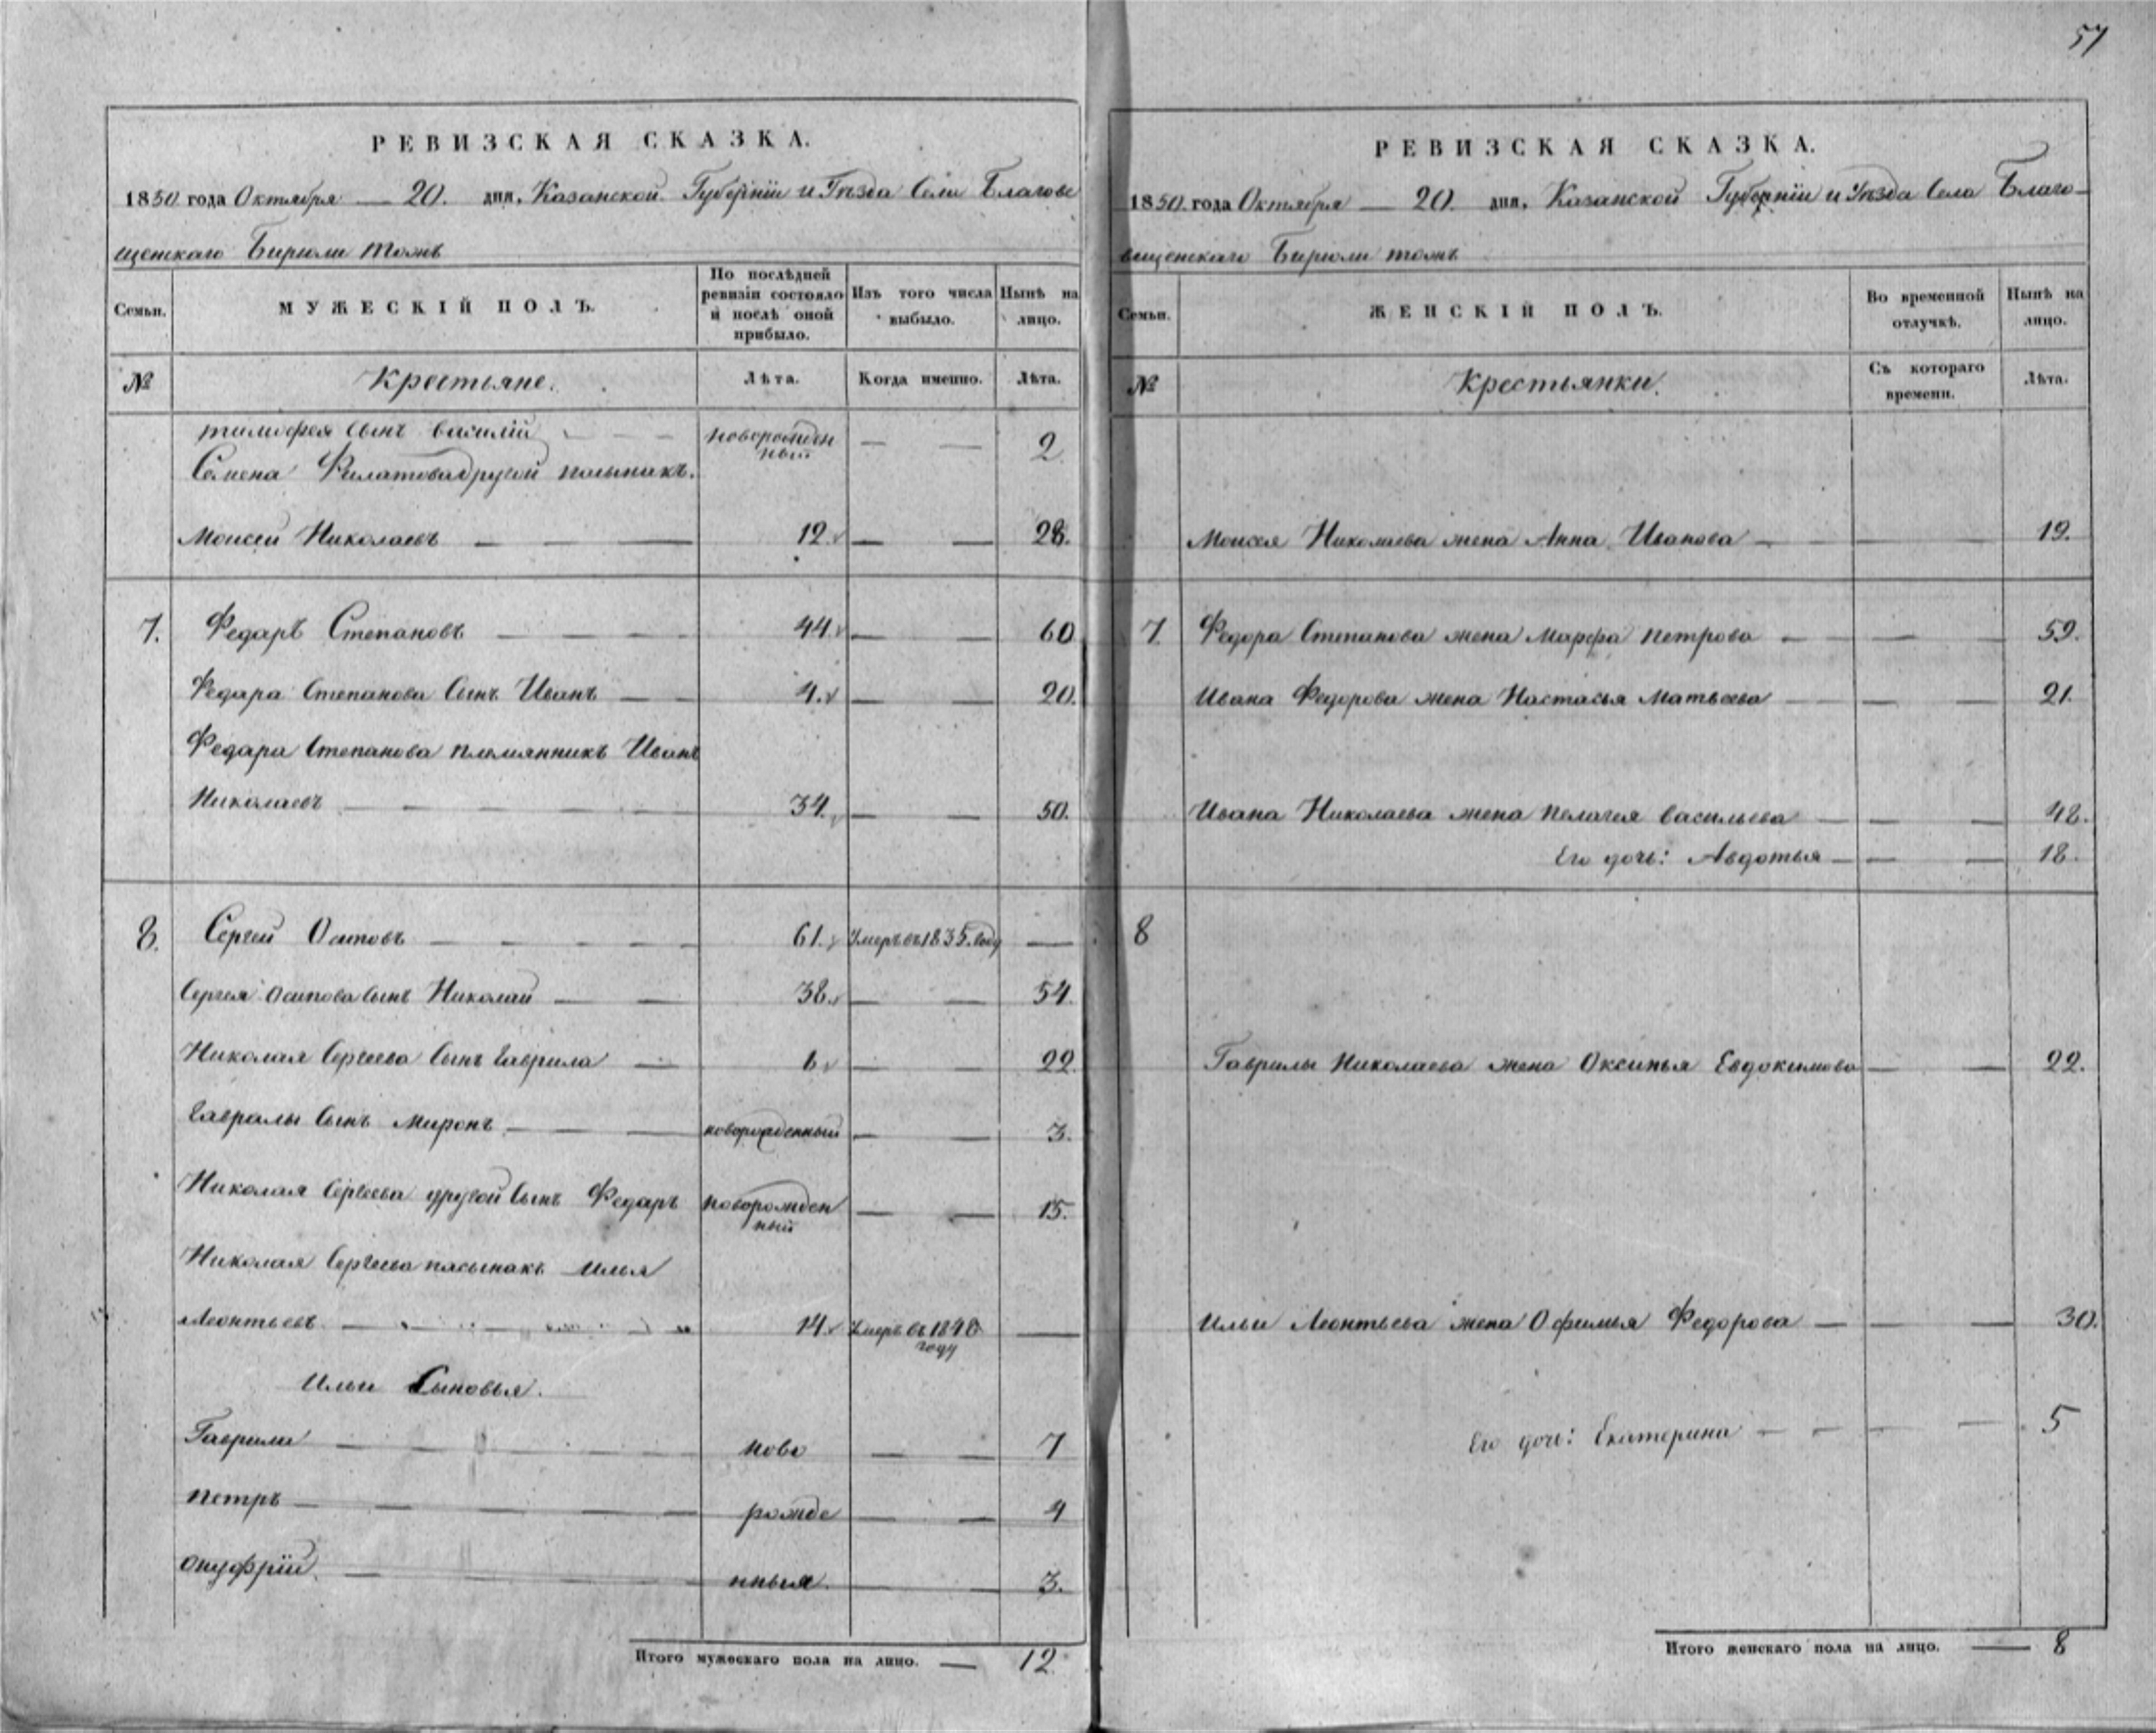 57
РЕВИЗСКАЯ СКАЗКА.
1850 года Октября — 20. дня, Казанской Губернiи и Уѣзда Села Благове
щенскаго Бирюли тожъ
Семьи. МУЖЕСКIЙ ПОЛЪ. По послѣдней ревизiи состояло и послѣ оной прибыло. Изъ того числа выбыло. Нынѣ на лицо.
№ Крестьяне. Лѣта. Когда именно. Лѣта.
тимофея сынъ василiй — — новорожден ный — — 2
Семена Филатова другой пасынакъ.
Моисей Николаевъ — — 12. — — 28.
7. Федаръ Степановъ — — — 44. — — 60
Федара Степанова Сынъ Иванъ — — 4. — — 20.
Федара Степанова племянникъ Иванъ
Николаевъ — — — — 34. — — 50.
8. Сергей Осиповъ — — — — 61. Умеръ въ 1835. году —
Сергея Осипова сынъ Николай — — 38. — — 54.
Николая Сергеева Сынъ Гаврила — — 6 — — 22
Гаврилы Сынъ Миронъ — — новорожденный — — 3.
Николая Сергеева другой Сынъ Федаръ новорожден ный — — 15.
Николая Сергеева пасынакъ Илья
Леонтьевъ — — 14. Умеръ въ 1848 году —
Ильи Сыновья.
Гаврила — — — — ново — — 7
петръ — — — — рожде — — 4
онуфрiй. — — — нныя. — — 3.
Итого мужескаго пола на лицо. — 12.
РЕВИЗСКАЯ СКАЗКА.
1850. года Октября — 20. дня, Казанской Губернiи и Уѣзда Села Благо-
вещенскаго Бирюли тожъ
Семьи. ЖЕНСКIЙ ПОЛЪ. Во временной отлучкѣ. Нынѣ на лицо.
№ Крестьянки. Съ котораго времени. Лѣта.
Моисея Николаева жена Анна Иванова — — 19.
7. Федора Степанова жена Марфа петрова — — — 59.
Ивана Федорова жена Настасья Матвеева — — — 21.
Ивана Николаева жена пелагея васильева — — — 48.
Его дочь: Авдотья — — — 18.
8
Гаврилы Николаева жена Оксинья Евдокимова — — 22.
Ильи Леонтьева жена Офимья Федорова — — — 30.
Его дочь: Екатерина — — — — 5
Итого женскаго пола на лицо. — 8